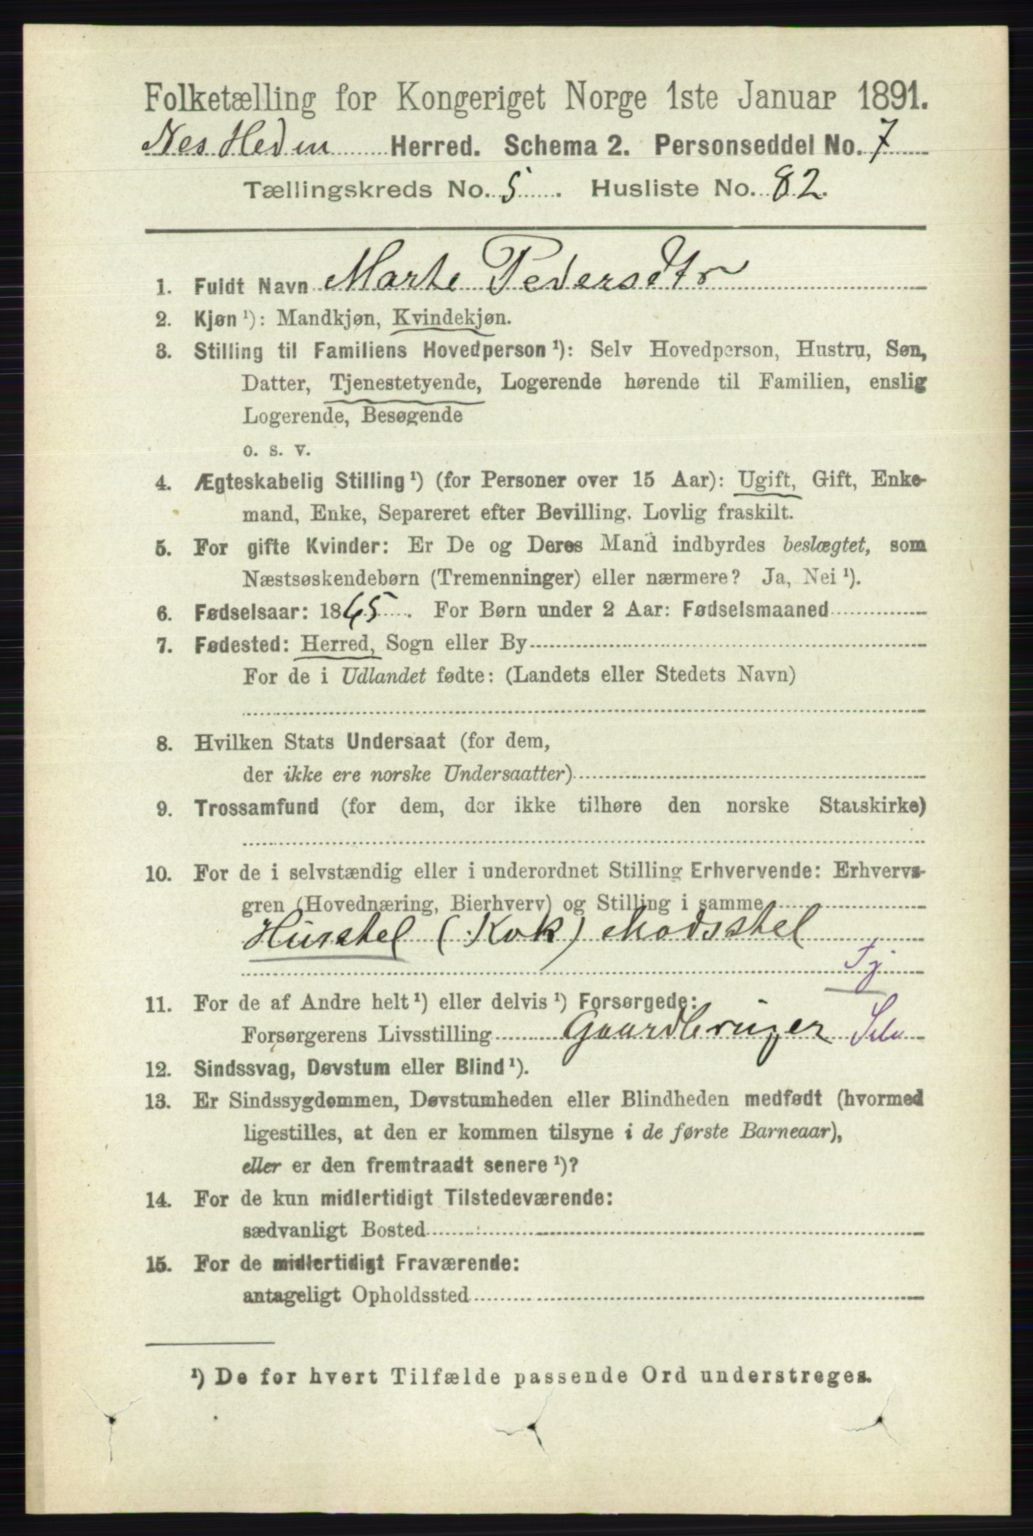 Folketælling for Kongeriget Norge 1ste Januar 1891.
Nes Hedm Herred. Schema 2. Personseddel No. 7
Tællingskreds No. 5. Husliste No. 82.
1. Fuldt Navn Marte Pedersdtr
2. Kjøn ¹): Mandkjøn, Kvindekjøn.
3. Stilling til Familiens Hovedperson ¹): Selv Hovedperson, Hustru, Søn,
Datter, Tjenestetyende, Logerende hørende til Familien, enslig
Logerende, Besøgende
o. s. v.
4. Ægteskabelig Stilling ¹) (for Personer over 15 Aar): Ugift, Gift, Enke-
mand, Enke, Separeret efter Bevilling. Lovlig fraskilt.
5. For gifte Kvinder: Er De og Deres Mand indbyrdes beslægtet, som
Næstsøskendebørn (Tremenninger) eller nærmere? Ja, Nei ¹).
6. Fødselsaar: 1865. For Børn under 2 Aar: Fødselsmaaned
7. Fødested: Herred, Sogn eller By
For de i Udlandet fødte: (Landets eller Stedets Navn)
8. Hvilken Stats Undersaat (for dem,
der ikke ere norske Undersaatter)
9. Trossamfund (for dem, der ikke tilhøre den norske Statskirke)
10. For de i selvstændig eller i underordnet Stilling Erhvervende: Erhvervs-
gren (Hovednæring, Bierhverv) og Stilling i samme
Husstel (Kok) Madsstel
Tj
11. For de af Andre helt ¹) eller delvis ¹) Forsørgede:
Forsørgerens Livsstilling Gaardbruger Selv
12. Sindssvag, Døvstum eller Blind ¹).
13. Er Sindssygdommen, Døvstumheden eller Blindheden medfødt (hvormed
ligestilles, at den er kommen tilsyne i de første Barneaar),
eller er den fremtraadt senere ¹)?
14. For de kun midlertidigt Tilstedeværende:
sædvanligt Bosted
15. For de midlertidigt Fraværende:
antageligt Opholdssted
¹) De for hvert Tilfælde passende Ord understreges.